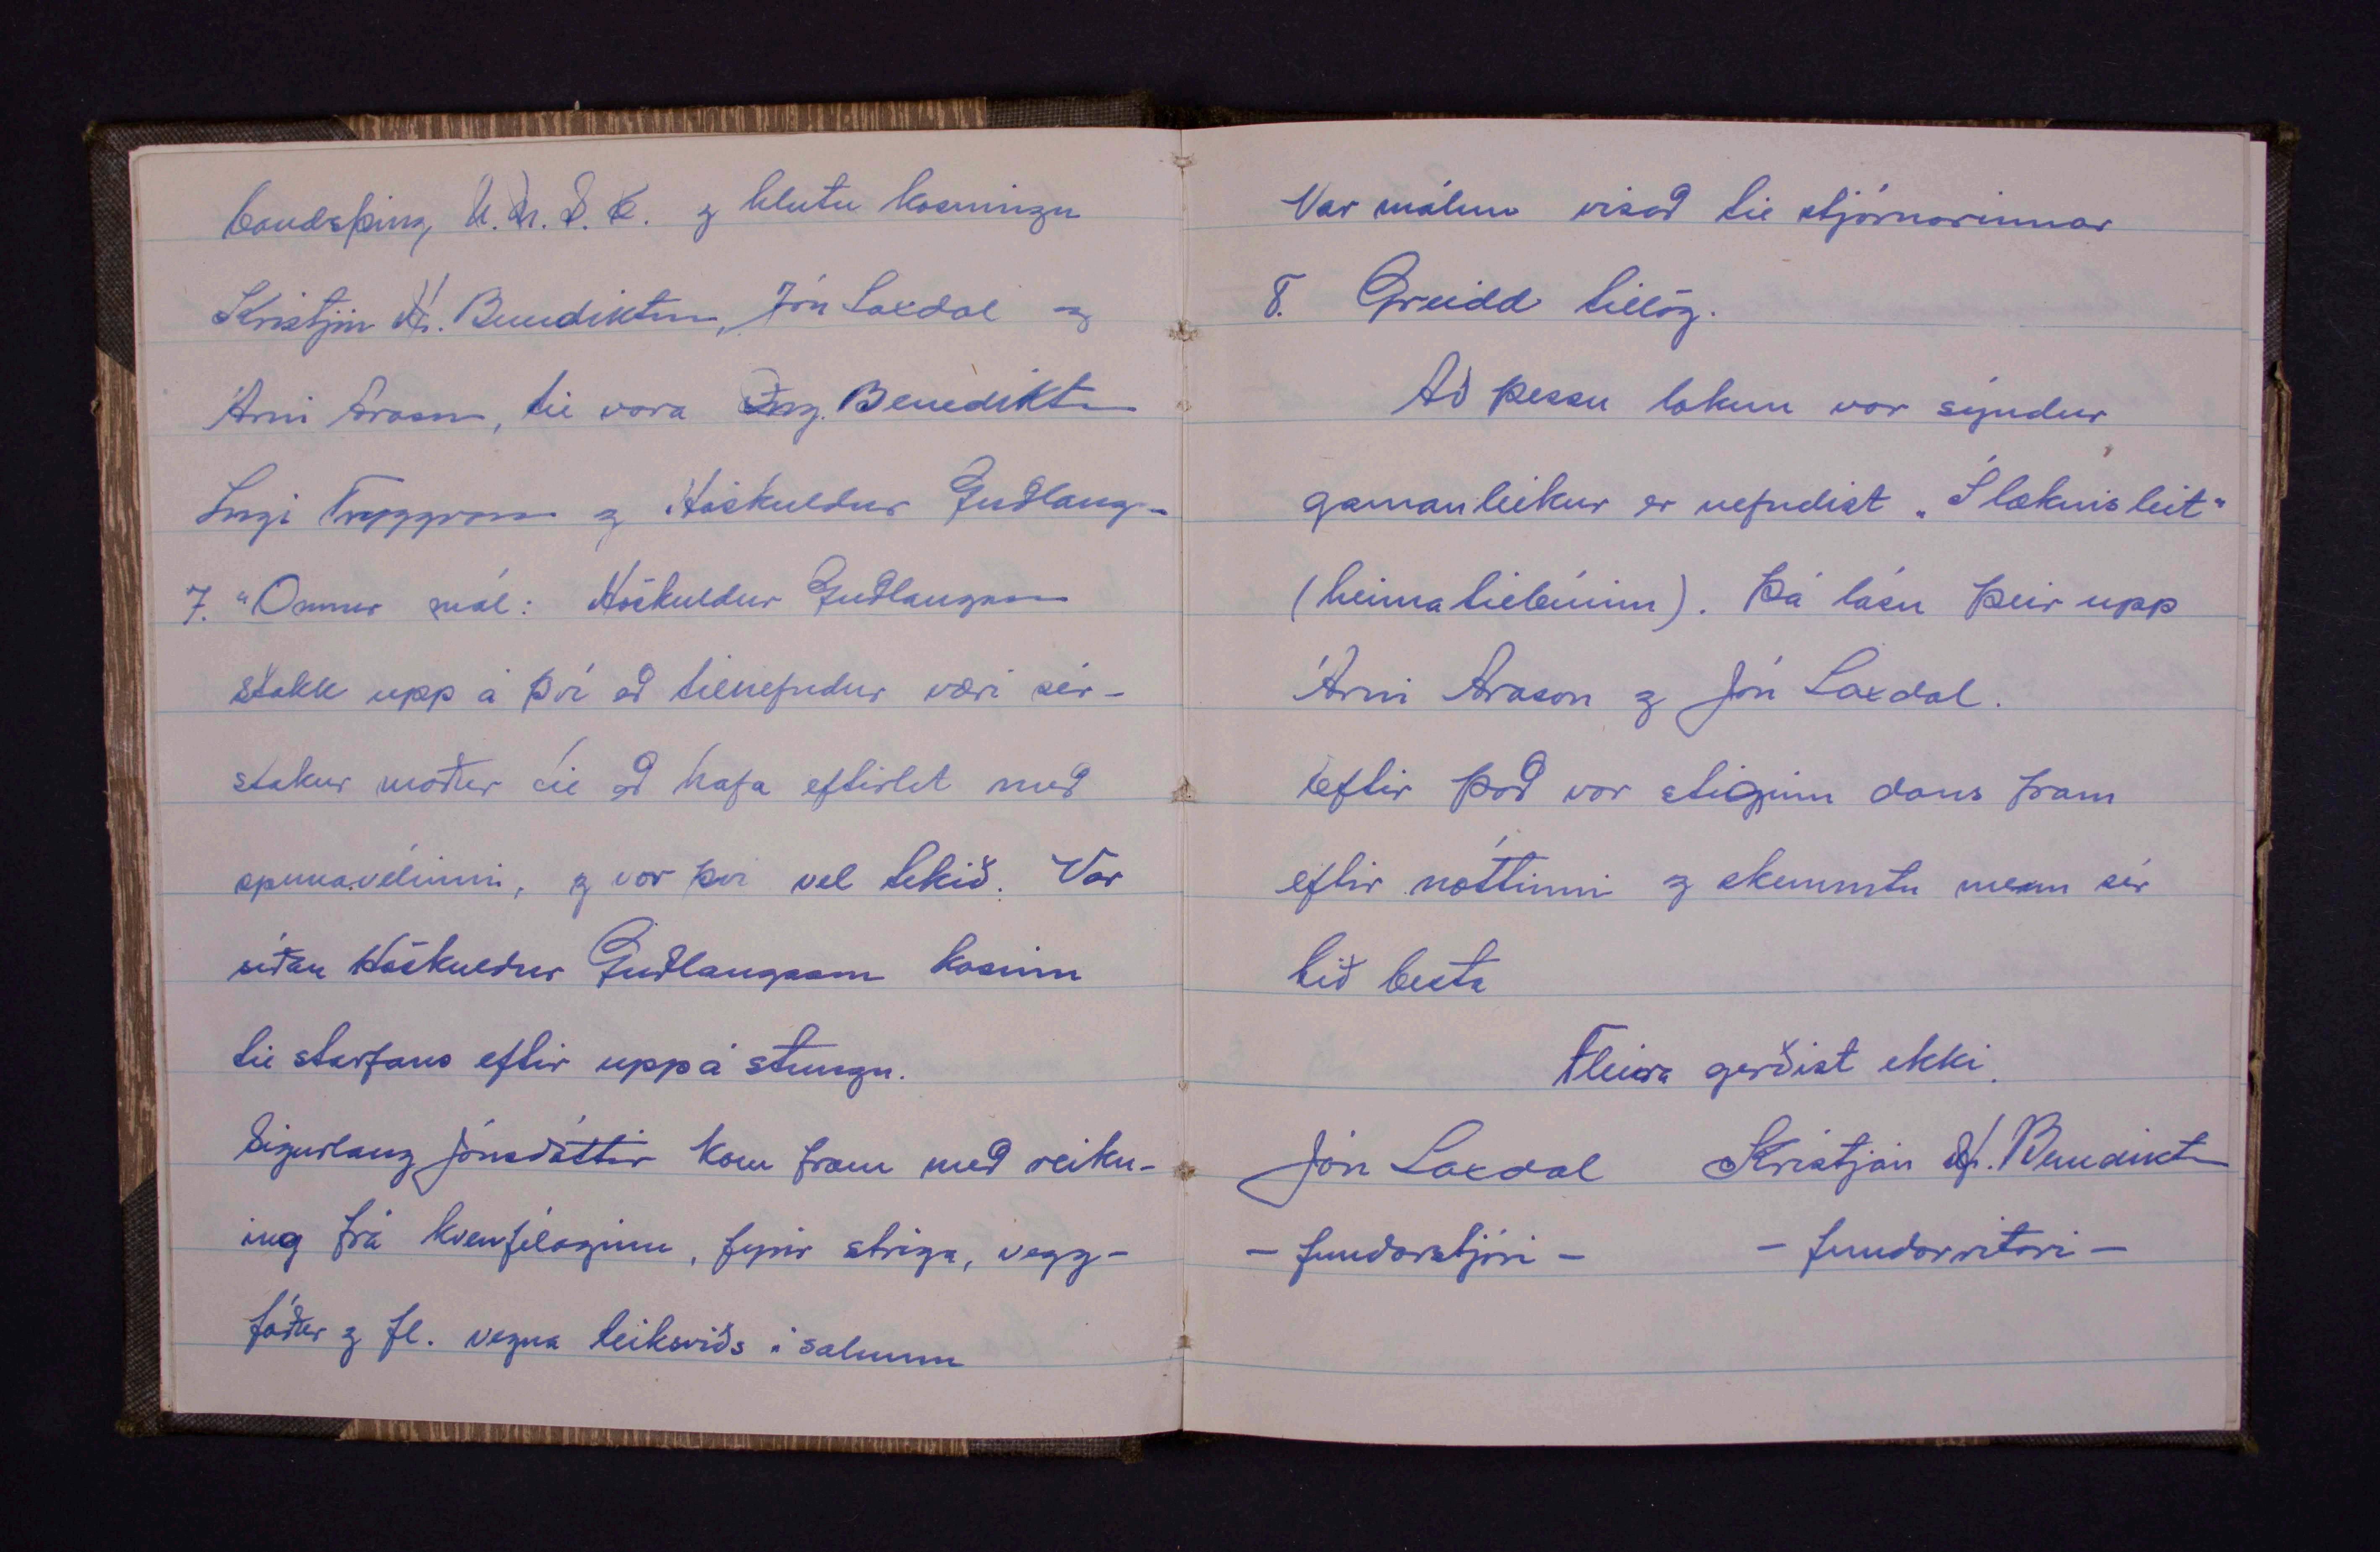 bandsþing U.M.S.E. og hlutu kosningu
Kristján H. Benediktss, Jón Laxdal og
Árni Arason, til vara Ing. Benediktss
Ingi Tryggvason og Höskuldur Guðlaug-
7. Önnur mál: Höskuldur Guðlaugsson
stakk upp á því að tilnefndur væri sér-
stakur maður til að hafa eftirlit með
spunavélinni, og var því vel tekið. Var
síðan Höskuldur Guðlaugsson kosinn
til starfans eftir uppá stungu.
Sigurlaug Jónsdóttir kom fram með reikn-
ing frá kvenfélaginu, fyrir striga, vegg-
fóður og fl. vegna leiksviðs í salnum
Var málinu visað til stjórnarinnar
8. Greidd tillög.
Að þessu loknu var sýndur
gamanleikur er nefndist „Í læknisleit"
(heimatilbúinn). Þá lásu þeir upp
Árni Arason og Jón Laxdal.
Eftir það var stiginn dans fram
eftir nóttinni og skemmtu menn sér
hið besta
Fleira gerðist ekki.
Jón Laxdal Kristján H. Benediktss
- fundarstjóri - - fundarritari -